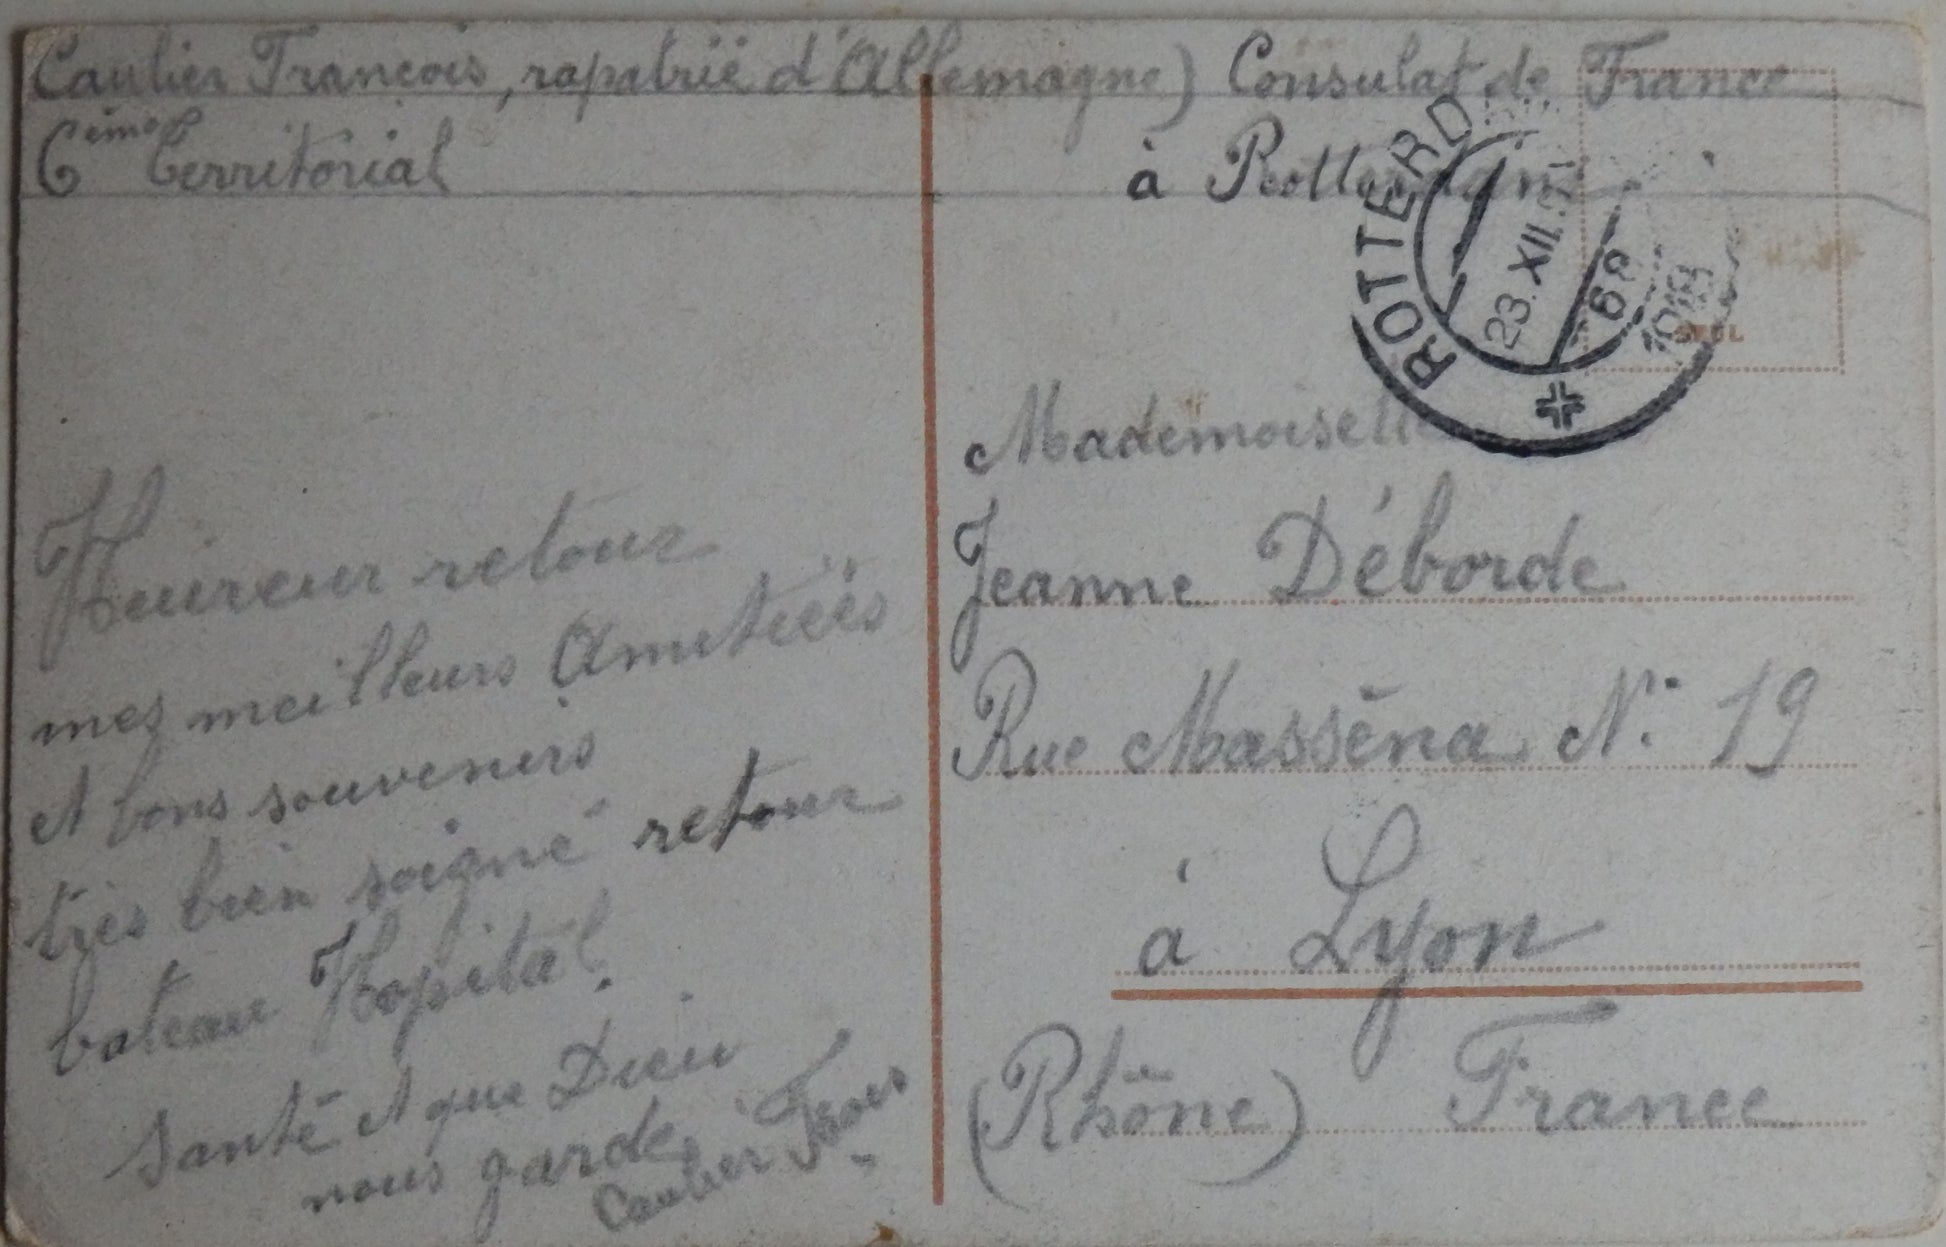 Caulier François, rapatrië d'Allemagne) Consulat de France
6ème Territorial à Rotterdam
ROTTERD
23.XII.
1918
Mademoiselle
Jeanne Déborde
Rue Masséna N: 19
à Lyon
(Rhône) France
Heureux retour
mes meilleurs Amitiëës
et bons souvenirs
très bien soigné retour
bateau Hopital.
Santé et que Dieu
nous garde,
Caulier Frçois